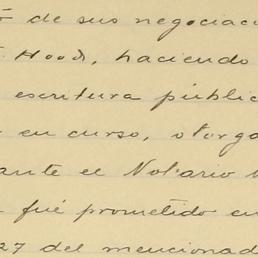 de sus negociac
Hood, haciendo
escritura públic
en curso, otorga
ante el Notario
fué prometido en
27 del mencionad